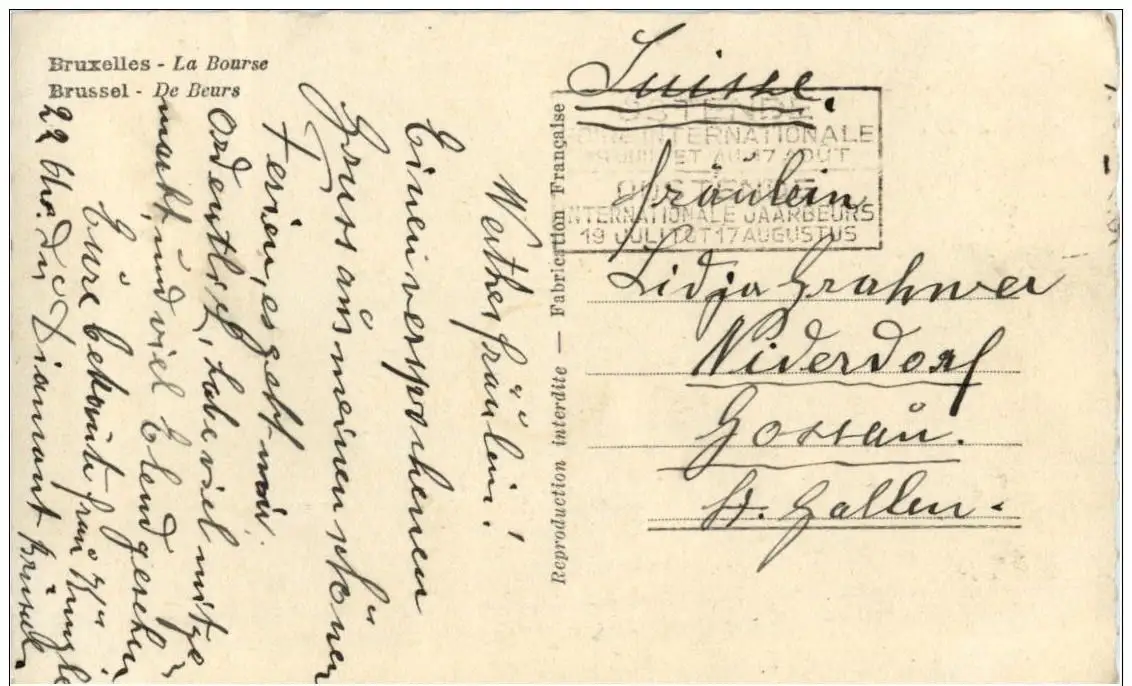 Bruxelles - La Bourse
Brussel - De Beurs
Werthes fräulein!
Einen versprochenen
Gruss aus meinen schönen
Ferien, es geht mir
Ordentlich, habe viel mitge
macht, und viel Elend gesehen
Eure bekannte frau
22 Diamant Brüssel
Reproduction interdite — Fabrication Française
OSTENDE
FOIRE INTERNATIONALE
19 JUILLET AU 17 AOÛT
OOSTENDE
INTERNATIONALE JAARBEURS
19 JULI TOT 17 AUGUSTUS
Suisse.
fräulein
Lidja Grahwer
Niderdorf
Gossau.
St. Gallen.